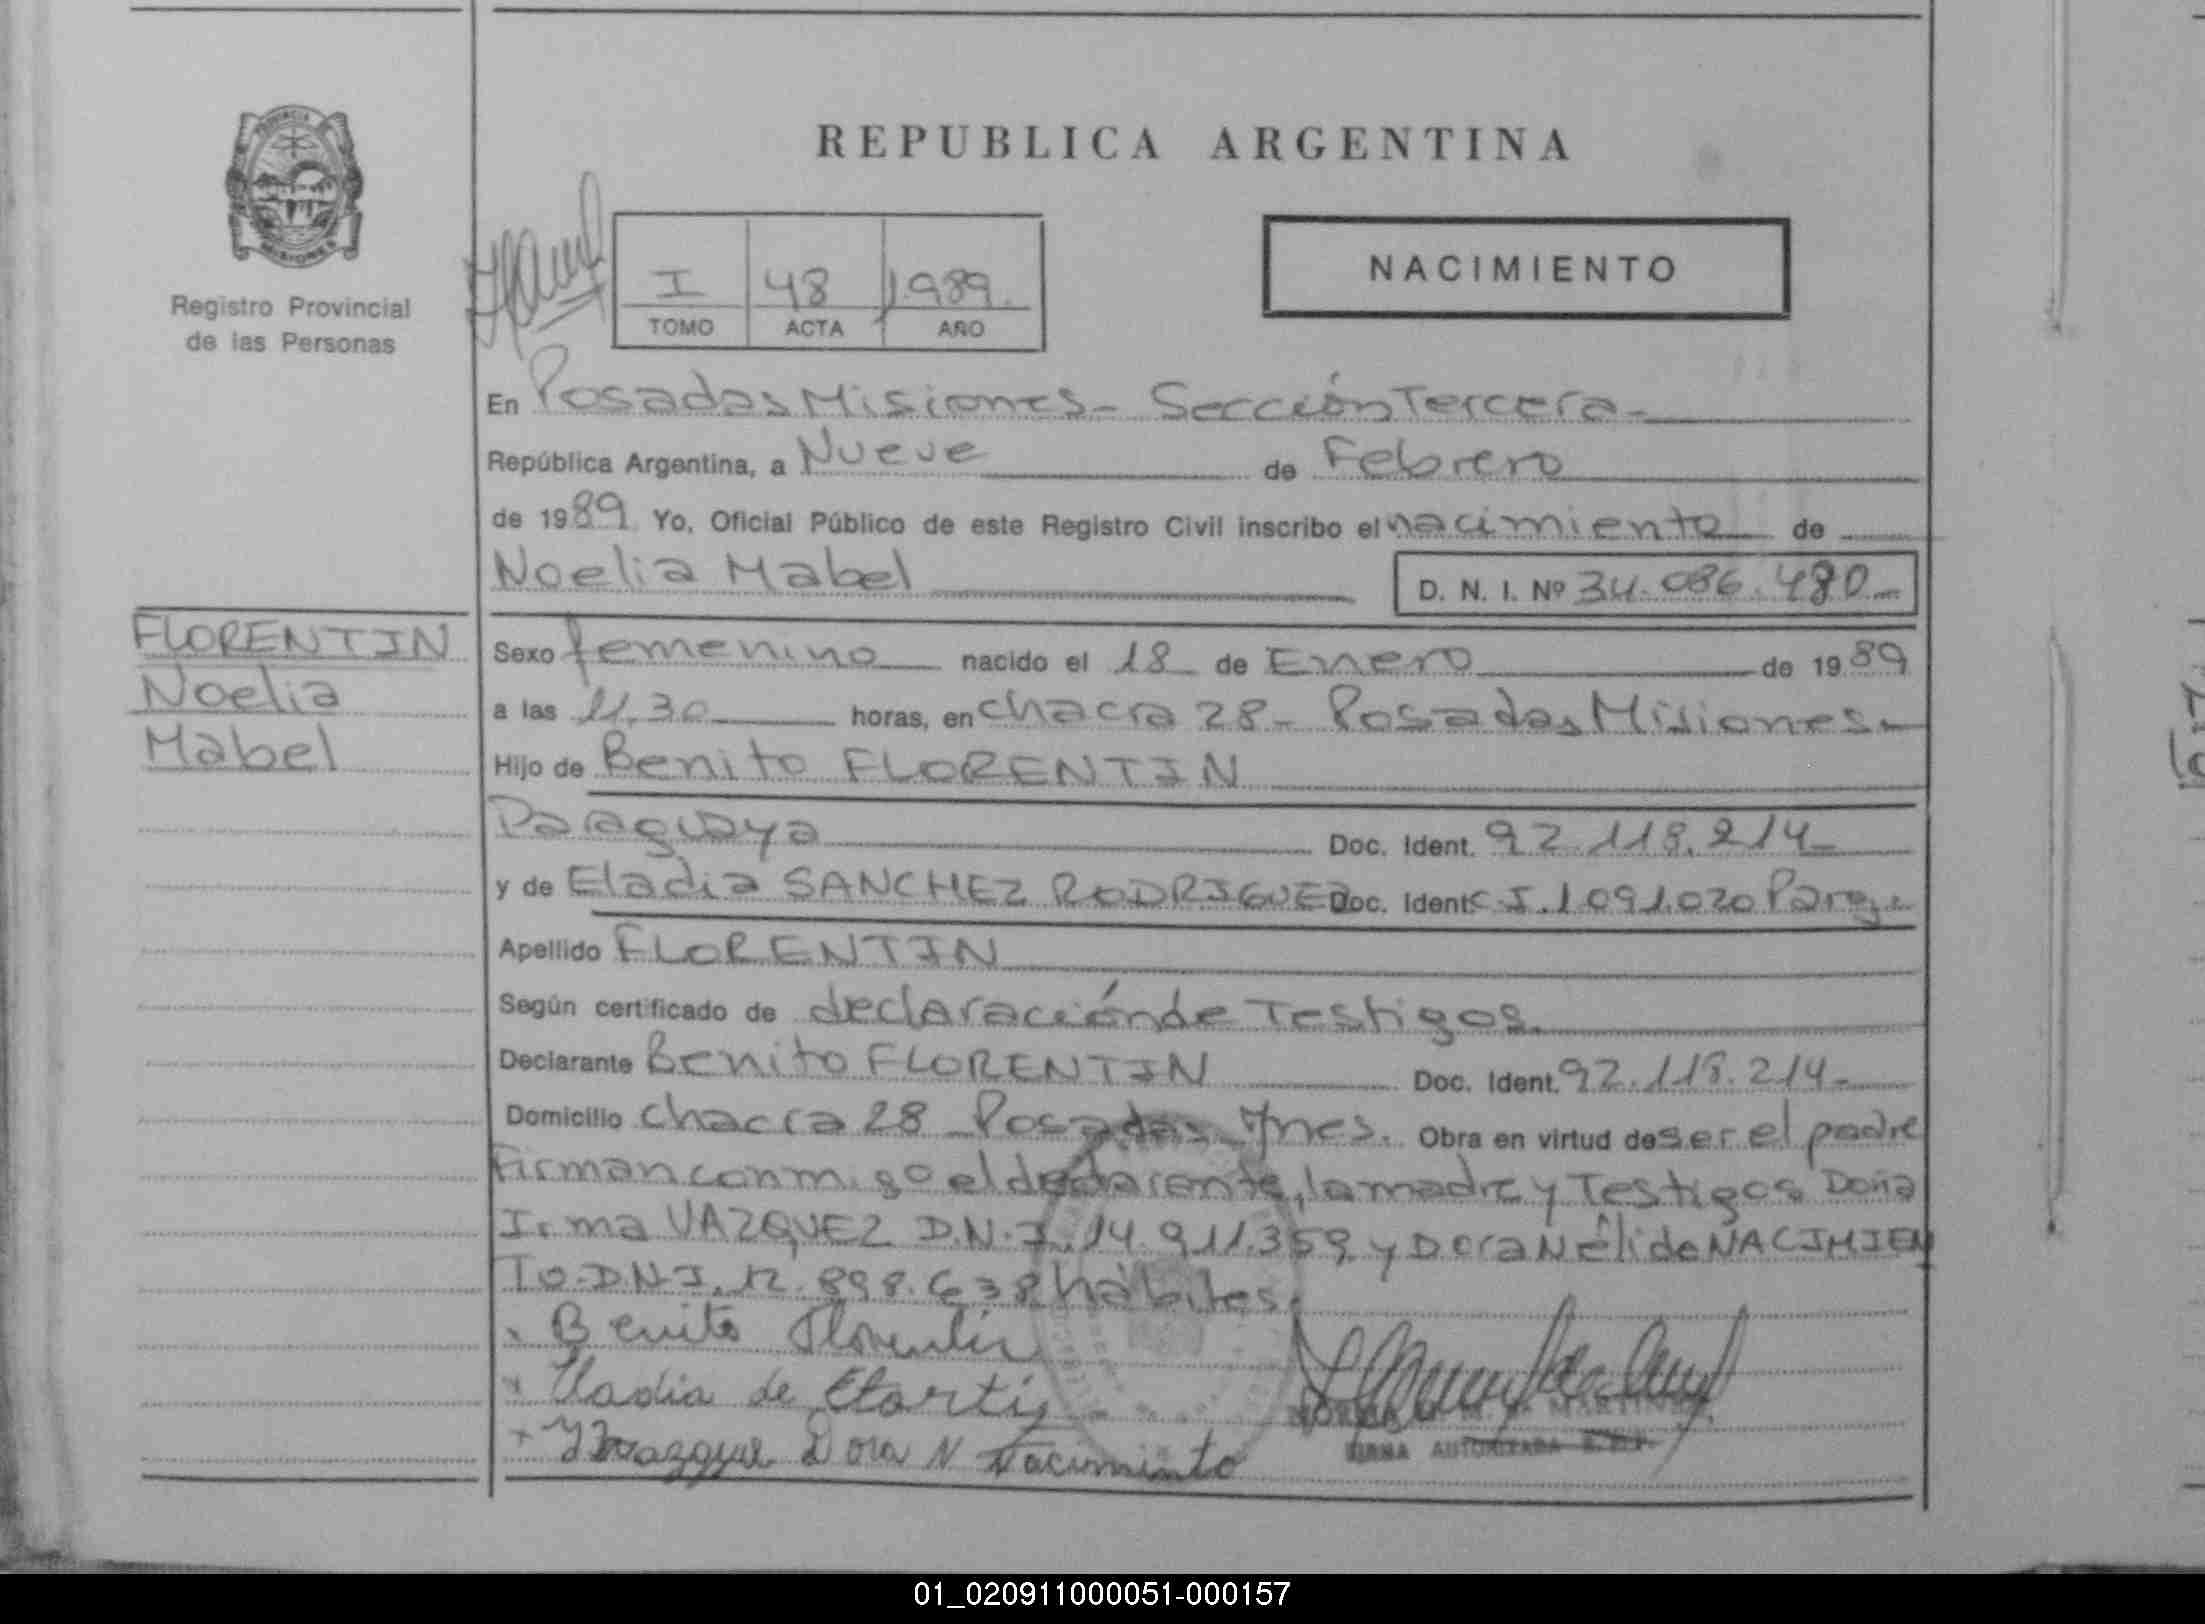 REPUBLICA ARGENTINA
PROVINCIA
MISIONES
Registro Provincial
de las Personas
I 48 1.989.
TOMO ACTA AÑO
NACIMIENTO
En Posadas Misiones - Sección Tercera -
República Argentina, a Nueve de Febrero
de 1989 Yo, Oficial Público de este Registro Civil inscribo el nacimiento de
Noelia Mabel D. N. I. Nº 34.086.480
FLORENTIN
Noelia
Mabel
Sexo femenino nacido el 18 de Enero de 1989
a las 11,30 horas, en chacra 28 - Posadas Misiones -
Hijo de Benito FLORENTIN
Paraguaya Doc. Ident. 92.118.214
y de Eladia SANCHEZ RODRIGUEZ Doc. Ident. C.I. 1.091.020 Parag.
Apellido FLORENTIN
Según certificado de declaración de Testigos.
Declarante Benito FLORENTIN Doc. Ident. 92.118.214
Domicilio chacra 28 - Posadas - Mnes. Obra en virtud de ser el padre
Firman conmigo el declarante, la madre y Testigos Doña
Irma VAZQUEZ D.N.I. 14.911.359 y Dora Nélida NACIMIEN
TO. D.N.I. 12.898.638 hábiles.
Benito Florentin
Eladia de
Dora N Nacimiento
FIRMA AUTORIZADA
01_020911000051-000157